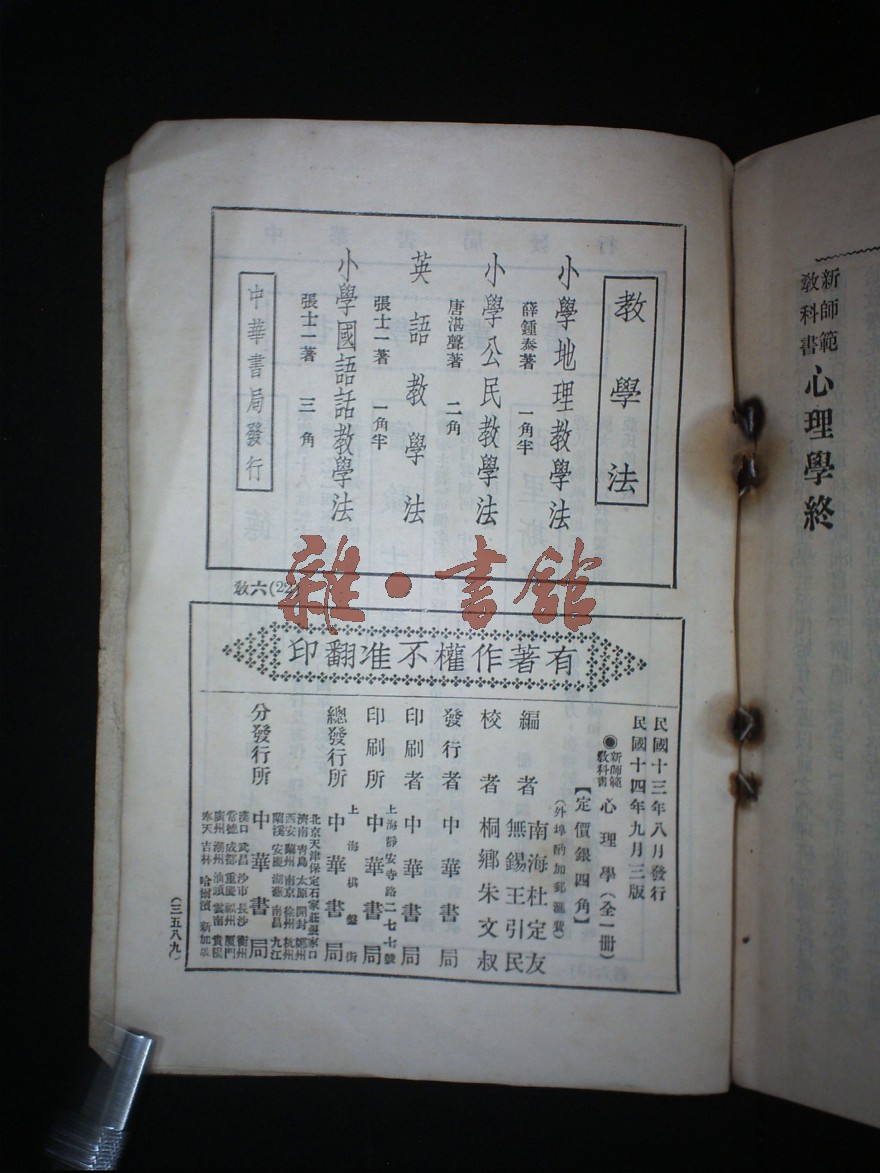 新師範
教科書
心理學終
教學法
小學地理教學法
薛鍾泰著 一角半
小學公民教學法
唐湛聲著 二角
英語教學法
張士一著 一角半
小學國語話教學法
張士一著 三角
中華書局發行
教六(22)
雜·書館
有著作權不准翻印
民國十三年八月發行
民國十四年九月三版
新師範
教科書
心理學(全一冊)
【定價銀四角】
(外埠酌加郵滙費)
編者 南海杜定友
無錫王引民
校者 桐鄉朱文叔
發行者 中華書局
印刷者 中華書局
上海靜安寺路二七七號
印刷所 中華書局
上海棋盤街
總發行所 中華書局
北京天津保定石家莊張家口
濟南青島太原開封鄭州
西安蘭州南京徐州杭州
蘭溪安慶蕪湖南昌九江
分發行所 中華書局
漢口武昌沙市長沙衡州
常德成都重慶福州廈門
廣州潮州汕頭雲南貴陽
奉天吉林哈爾濱新加坡
(三五八九)